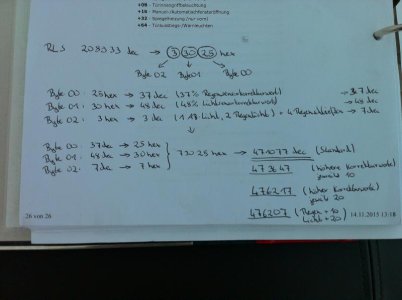 +08 - Türinnengriffbeleuchtung
+16 - Manuell/Automatischfensteröffnung
+32 - Spiegelheizung (nur vorn)
+64 - Türausstiegs-/Warnleuchten
RLS 208933 dec → 3 30 25 hex
Byte 02 Byte 01 Byte 00
Byte 00: 25 hex → 37 dec (37% Regensensorkorrekturwert) → 37 dec
Byte 01: 30 hex → 48 dec (48% Lichtsensorkorrekturwert) → 48 dec
Byte 02: 3 hex → 3 dec (1 Licht, 2 Regen) + 4 → 7 dec
↓
Byte 00: 37 dec → 25 hex
Byte 01: 48 dec → 30 hex } 73025 hex → 471077 dec (Standard)
Byte 02: 7 dec → 7 hex
473647 (höhere Korrekturwerte
jeweils 10
476217 (höher Korrekturwerte
jeweils 20
476207 (Regen +10
Licht +20)
26 von 26
14.11.2015 13:18